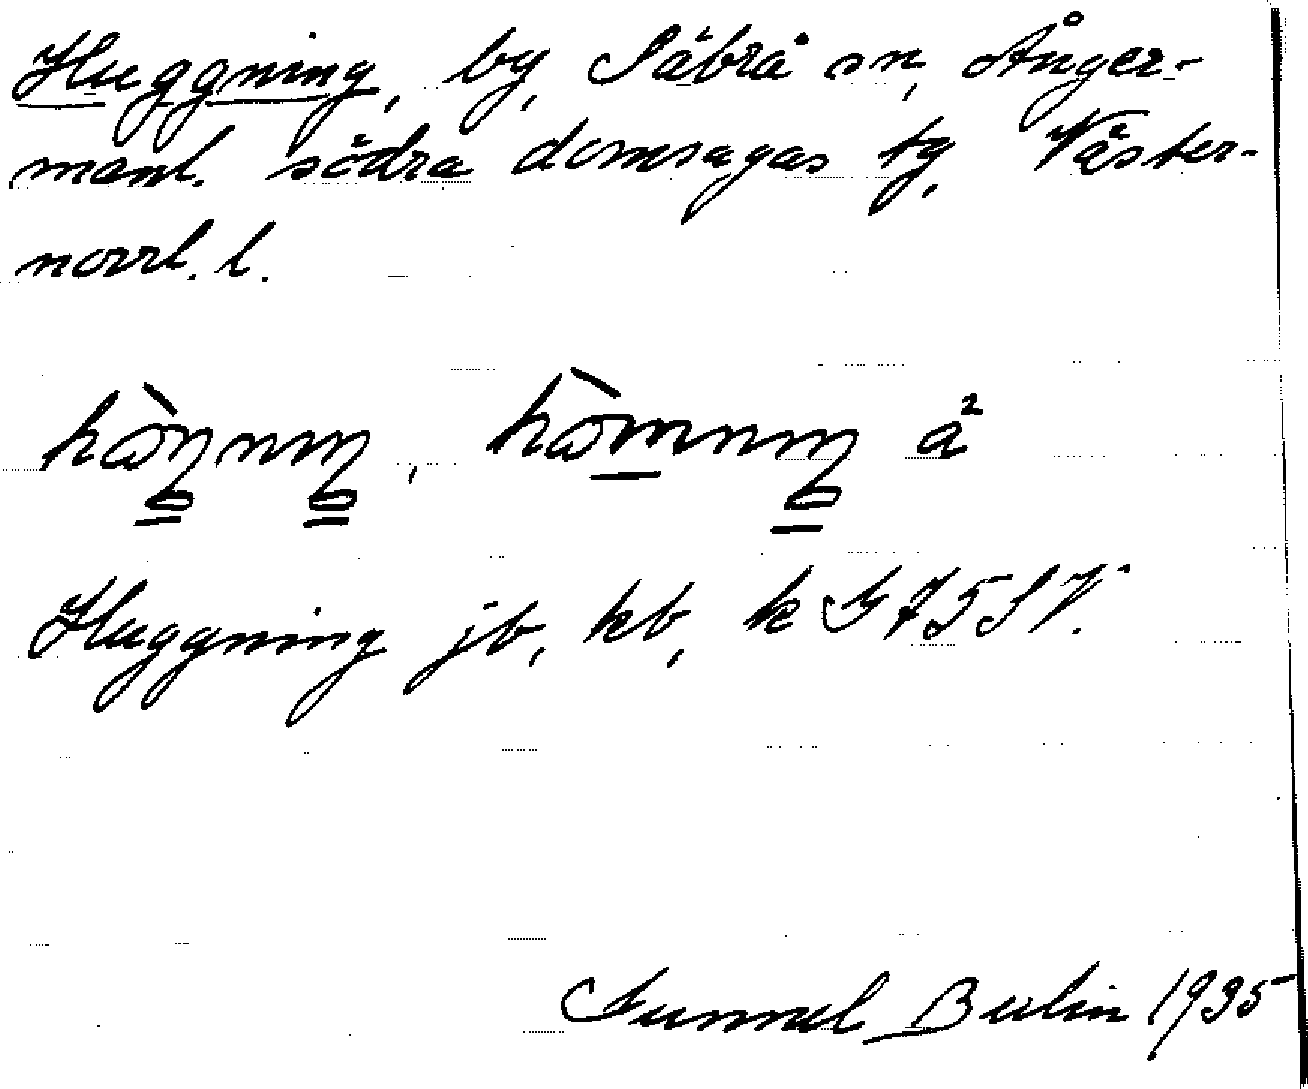 Huggning, by, Säbrå sn, Ånger-
manl. södra domsagas tg, Väster-
norrl. l.
Huggning jb, kb, k G 75 SV.
Gunnel Berlin 1935